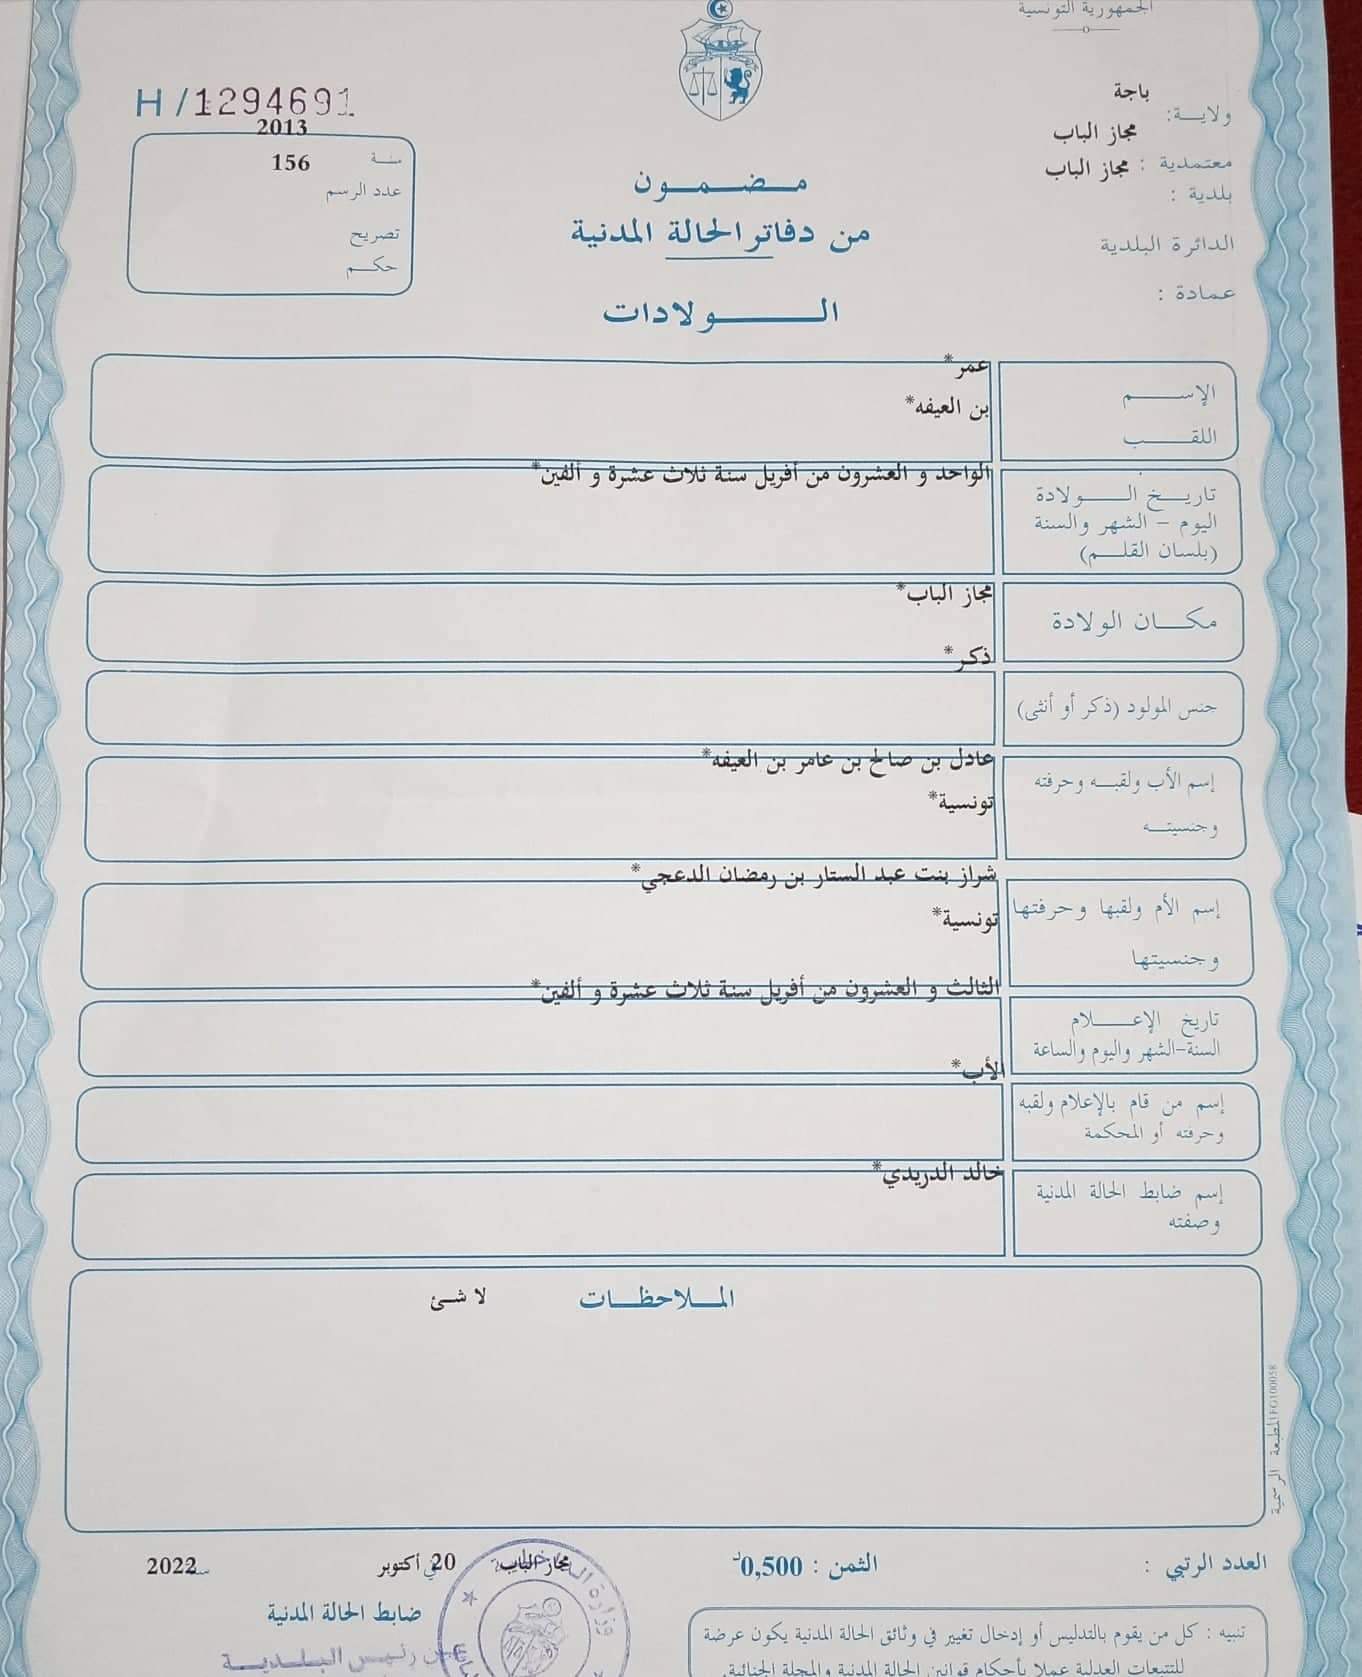 الجمهورية التونسية
H/1294691
باجة
ولاية:
مجاز الباب
معتمدية :
مجاز الباب
بلدية :
الدائرة البلدية
عمادة :
2013
سنة
156
عدد الرسم
تصريح
حكم
مضمون
من دفاتر الحالة المدنية
الولادات
عمر*
الإسم
بن العيفه*
اللقب
الواحد و العشرون من أفريل سنة ثلاث عشرة و ألفين*
تاريخ الولادة
اليوم - الشهر والسنة
(بلسان القلم)
مجاز الباب*
مكان الولادة
ذكر*
جنس المولود (ذكر أو أنثى)
عادل بن صالح بن عامر بن العيفه*
إسم الأب ولقبه وحرفته
تونسية*
وجنسيته
شراز بنت عبد الستار بن رمضان الدعجي*
إسم الأم ولقبها وحرفتها
تونسية*
وجنسيتها
الثالث و العشرون من أفريل سنة ثلاث عشرة و ألفين*
تاريخ الإعلام
السنة-الشهر واليوم والساعة
الأب*
إسم من قام بالإعلام ولقبه
وحرفته أو المحكمة
خالد الدريدي*
إسم ضابط الحالة المدنية
وصفته
الملاحظات
لا شئ
العدد الرتبي :
الثمن : 0,500د
مجاز الباب في 20 أكتوبر سنة 2022
ضابط الحالة المدنية
رئيس البلدية
تنبيه : كل من يقوم بالتدليس أو إدخال تغيير في وثائق الحالة المدنية يكون عرضة
للتتبعات العدلية عملا بأحكام قوانين الحالة المدنية والمجلة الجنائية.